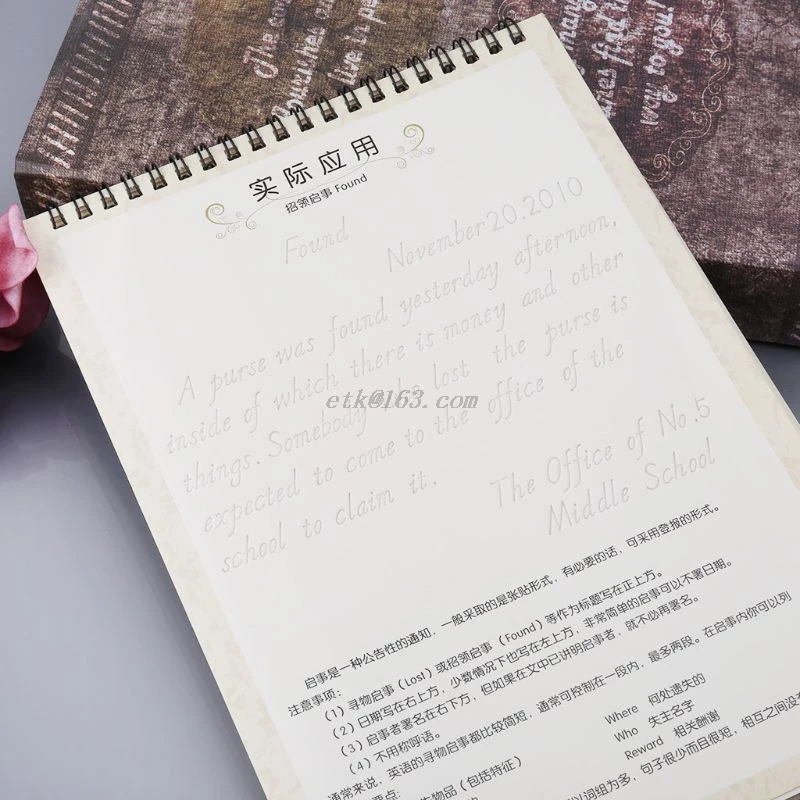 实际应用
招领启事 Found
Found
November 20.2010
A purse was found yesterday afternoon,
inside of which there is money and other
things. Somebody who lost the purse is
expected to come to the office of the
school to claim it.
The Office of No.5
Middle School
etk@163.com
启事是一种公告性的通知，一般采取的是张贴形式，有必要的话，可采用登报的形式。
注意事项：
（1）寻物启事（Lost）或招领启事（Found）等作为标题写在正上方。
（2）日期写在右上方，少数情况下也写在左上方，非常简单的启事可以不署日期。
（3）启事者署名在右下方，但如果在文中已讲明启事者，就不必再署名。
（4）不用称呼语。
通常来说，英语的寻物启事都比较简短，通常可控制在一段内，最多两段。在启事内你可以列
Where 何处遗失的
Who 失主名字
物品（包括特征）
Reward 相关酬谢
以词组为多，句子很少而且很短，相互之间没